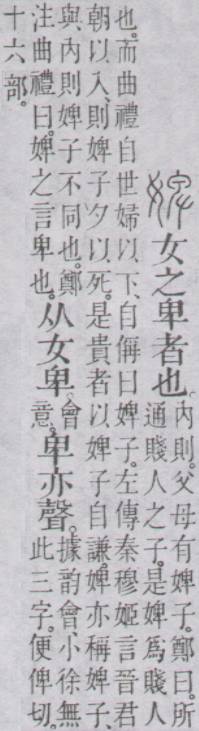 女之卑者也。内則。父母有婢子。鄭曰。所
通賤人之子。是婢爲賤人
也。而曲禮自世婦以下、自偁曰婢子。左傳秦穆姬言晉君
朝以入、則婢子夕以死。是貴者以婢子自謙。婢亦稱婢子、
與内則婢子不同也。鄭
注曲禮曰。婢之言卑也。
从女卑。會意。卑亦聲。據韵會、小徐無
此三字。便俾切。
十六部。